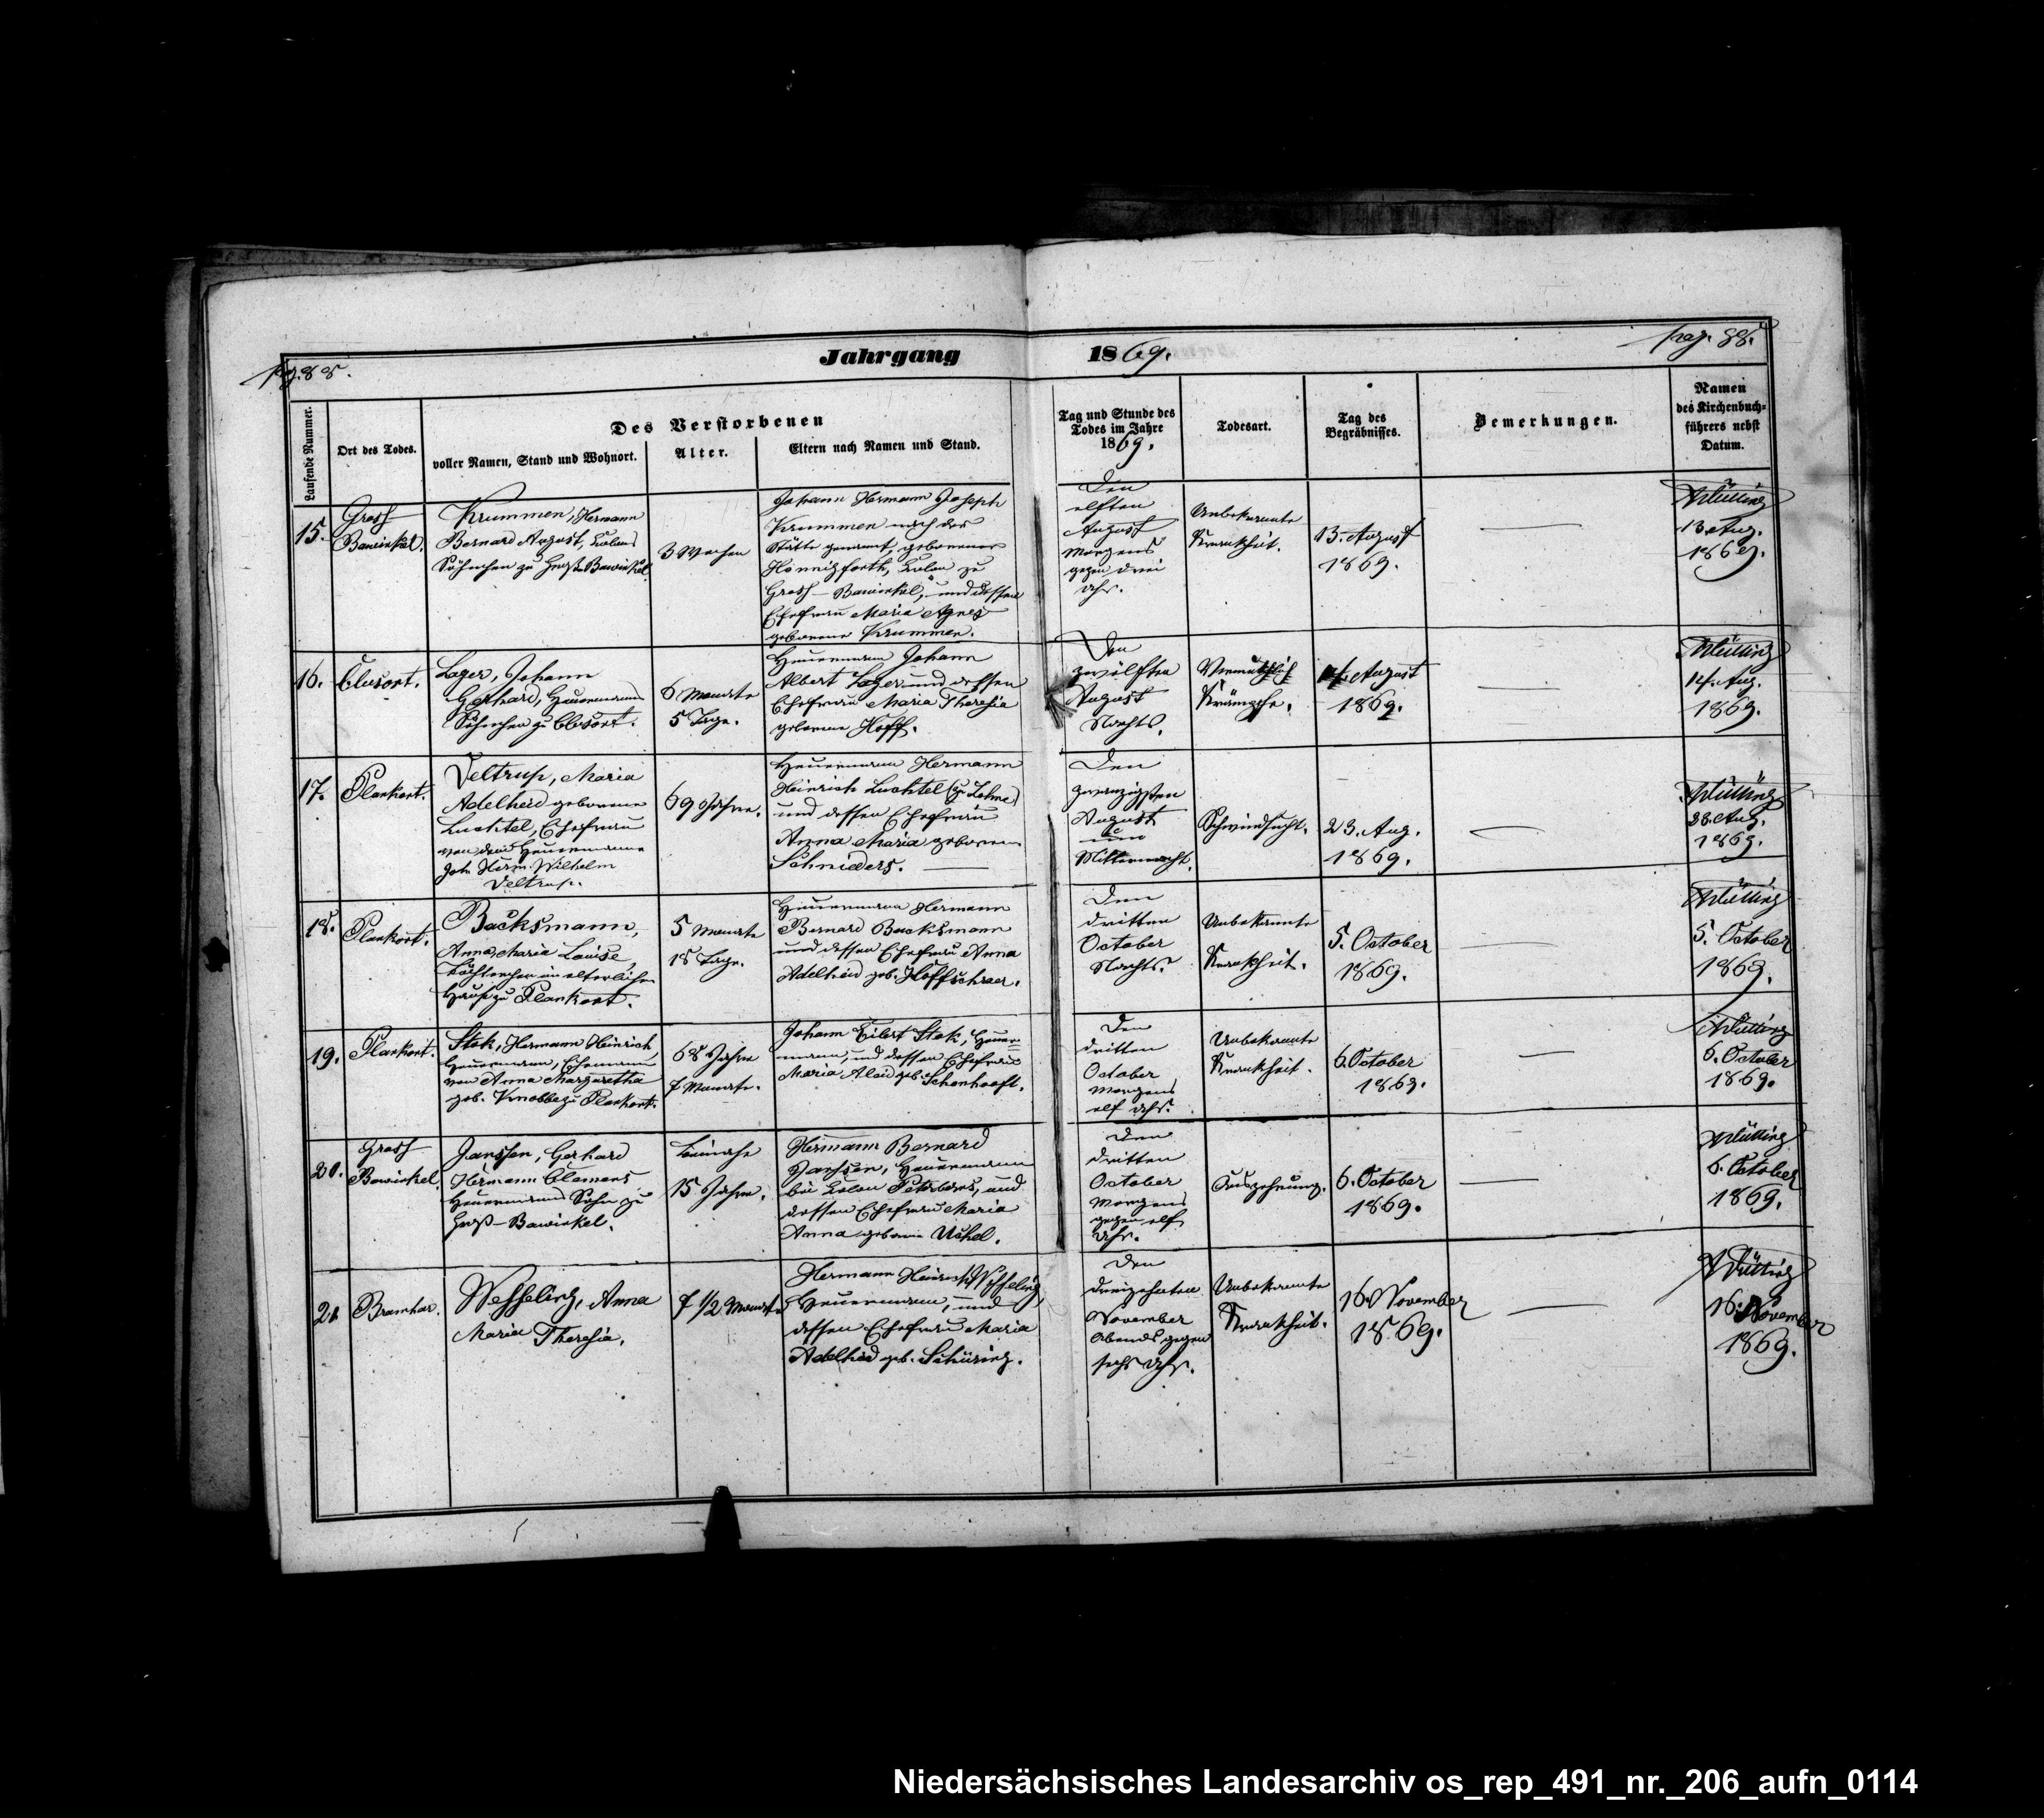 pag. 88.
Jahrgang 1869.
pag. 88.
Laufende Nummer.
Ort des Todes.
Des Verstorbenen
voller Namen, Stand und Wohnort.
Alter.
Eltern nach Namen und Stand.
Tag und Stunde des
Todes im Jahre
1869.
Todesart.
Tag des
Begräbnisses.
Bemerkungen.
Namen
des Kirchenbuch=
führers nebst
Datum.
15.
Gross
Bawinkel.
Krummen, Hermann
Bernard August, Colons
Söhnchen zu Groß-Bawinkel.
3 Wochen
Johann Hermann Joseph
Krummen nach der
Stätte genannt, geborener
Colon zu
Gross-Bawinkel, und dessen
Ehefrau Maria Agnes
geborene Krummen.
Den
elften
August
Morgens
gegen drei
Uhr.
Unbekannte
Krankheit.
13. August
1869.
13. Aug.
1869.
16.
Clusort.
Lager, Johann
Gerhard, Heuermanns
Söhnchen zu Clusort.
6 Monate
5 Tage.
Heuermann Johann
Albert Lager und dessen
Ehefrau Maria Theresia
geborene Hoff.
Den
zwölften
August
Nachts.
Vermuthlich
Krämpfe.
14. August
1869.
14. Aug.
1869.
17.
Plankort.
Veltrup, Maria
Adelheid geborene
Luchtel, Ehefrau
von dem Heuermanne
Joh. Herm. Wilhelm
Veltrup.
69 Jahre.
Heuermann Hermann
Heinrich Luchtel (zu Lohne)
und dessen Ehefrau
Anna Maria geborene
Schnieders.
Den
zwanzigsten
August
um
Mitternacht.
Schwindsucht.
23. Aug.
1869.
23. Aug.
1869.
18.
Plankort.
Backsmann,
Anna Maria Louise,
Töchterchen im elterlichen
Hause zu Plankort.
5 Monate
18 Tage.
Heuermann Hermann
Bernard Backsmann
und dessen Ehefrau Anna
Adelheid geb. Hoffschraer.
Den
dritten
October
Nachts.
Unbekannte
Krankheit.
5. October
1869.
5. October
1869.
19.
Plankort.
Stok, Hermann Heinrich
Heuermann, Ehemann
von Anna Margaretha
geb. Knobbe zu Plankort.
68 Jahre
7 Monate.
Johann Eilert Stok, Heuer=
mann, und dessen Ehefrau
Maria Aleid geb. Schonhooft.
Den
dritten
October
Morgens
elf Uhr.
Unbekannte
Krankheit.
6. October
1869.
6. October
1869.
20.
Gross
Bawinkel.
Janssen, Gerhard
Hermann Clemens
Heuermanns Sohn zu
Groß-Bawinkel.
Beinahe
15 Jahre.
Hermann Bernard
Janssen, Heuermann
bei Colon und
dessen Ehefrau Maria
Anna geborene
Den
dritten
October
Morgens
gegen elf
Uhr.
Auszehrung.
6. October
1869.
6. October
1869.
21.
Bramhar.
Wesseling, Anna
Maria Theresia.
7 1/2 Monate
Hermann Heinrich Wesseling,
Heuermann, und
dessen Ehefrau Maria
Adelheid geb. Schüring.
Den
dreizehnten
November
Abends gegen
sechs Uhr.
Unbekannte
Krankheit.
16. November
1869.
16. November
1869.
Niedersächsisches Landesarchiv os_rep_491_nr._206_aufn_0114